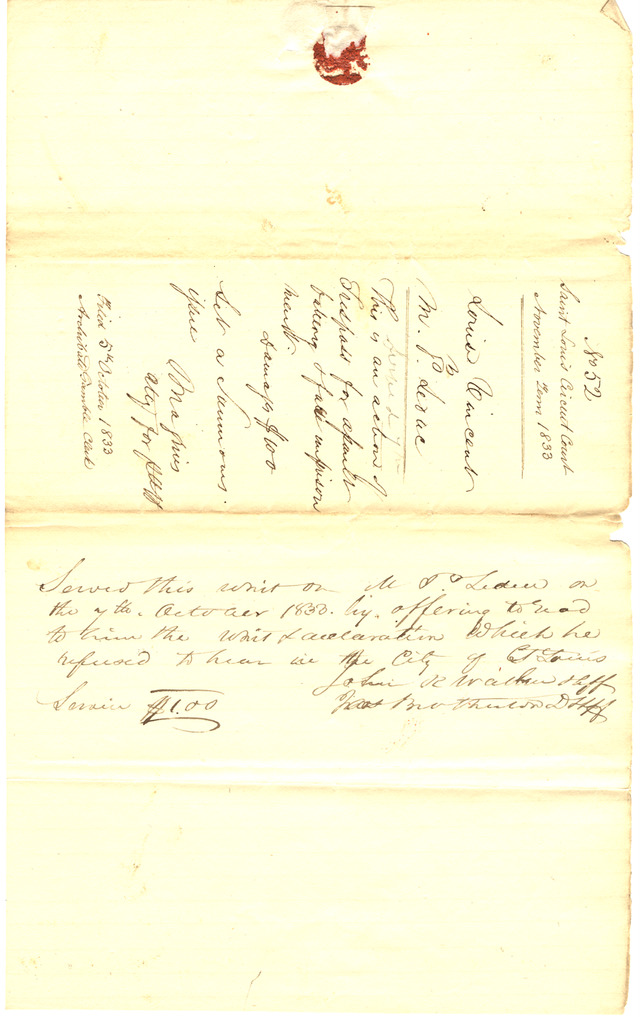 No 52
Saint Louis Circuit Court
November Term 1833
Louise Vincent
vs
M. P. Leduc
This is an action of
Trespass for assault
battery & false imprison
ment
Damages $100
Let a Summons
issue
Atty for Pltff
Filed 5th October 1833
Archibald Gamble Clerk
Served this writ on M P. Leduc on
the 7th. October 1833. by. offering to read
to him the writ & declaration which he
refused to hear in the City of St Louis
John K Walker Shff
Service $1.00
Jas Brotherton D Shff